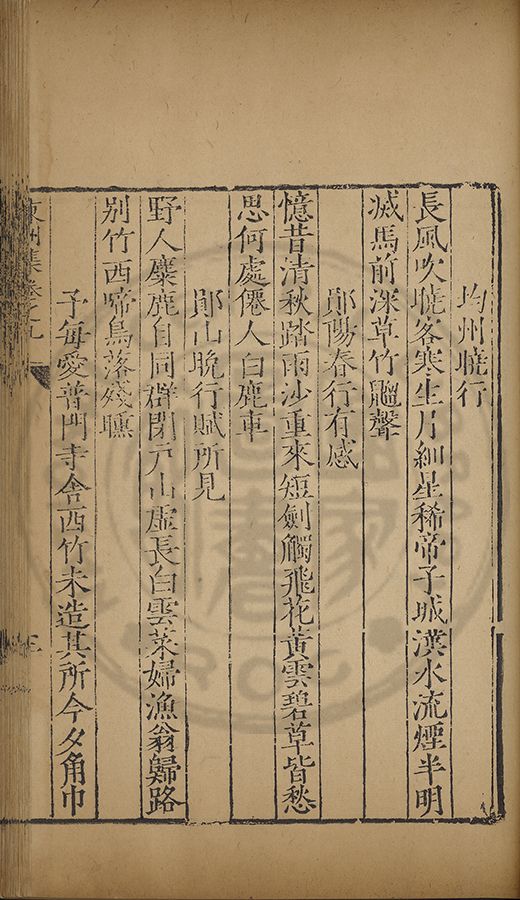 均州曉行
長風吹曉客寒生月細星稀帝子城漢水流煙半明
滅馬前深草竹鼯聲
鄖陽春行有感
憶昔清秋踏雨沙重來短劍觸飛花黃雲碧草皆愁
思何處僊人白鹿車
鄖山晚行賦所見
野人麋鹿自同群閉戶山虛長白雲菜婦漁翁歸路
别竹西啼鳥落殘曛
予每愛普門寺舍西竹未造其所今夕角巾
集卷之九